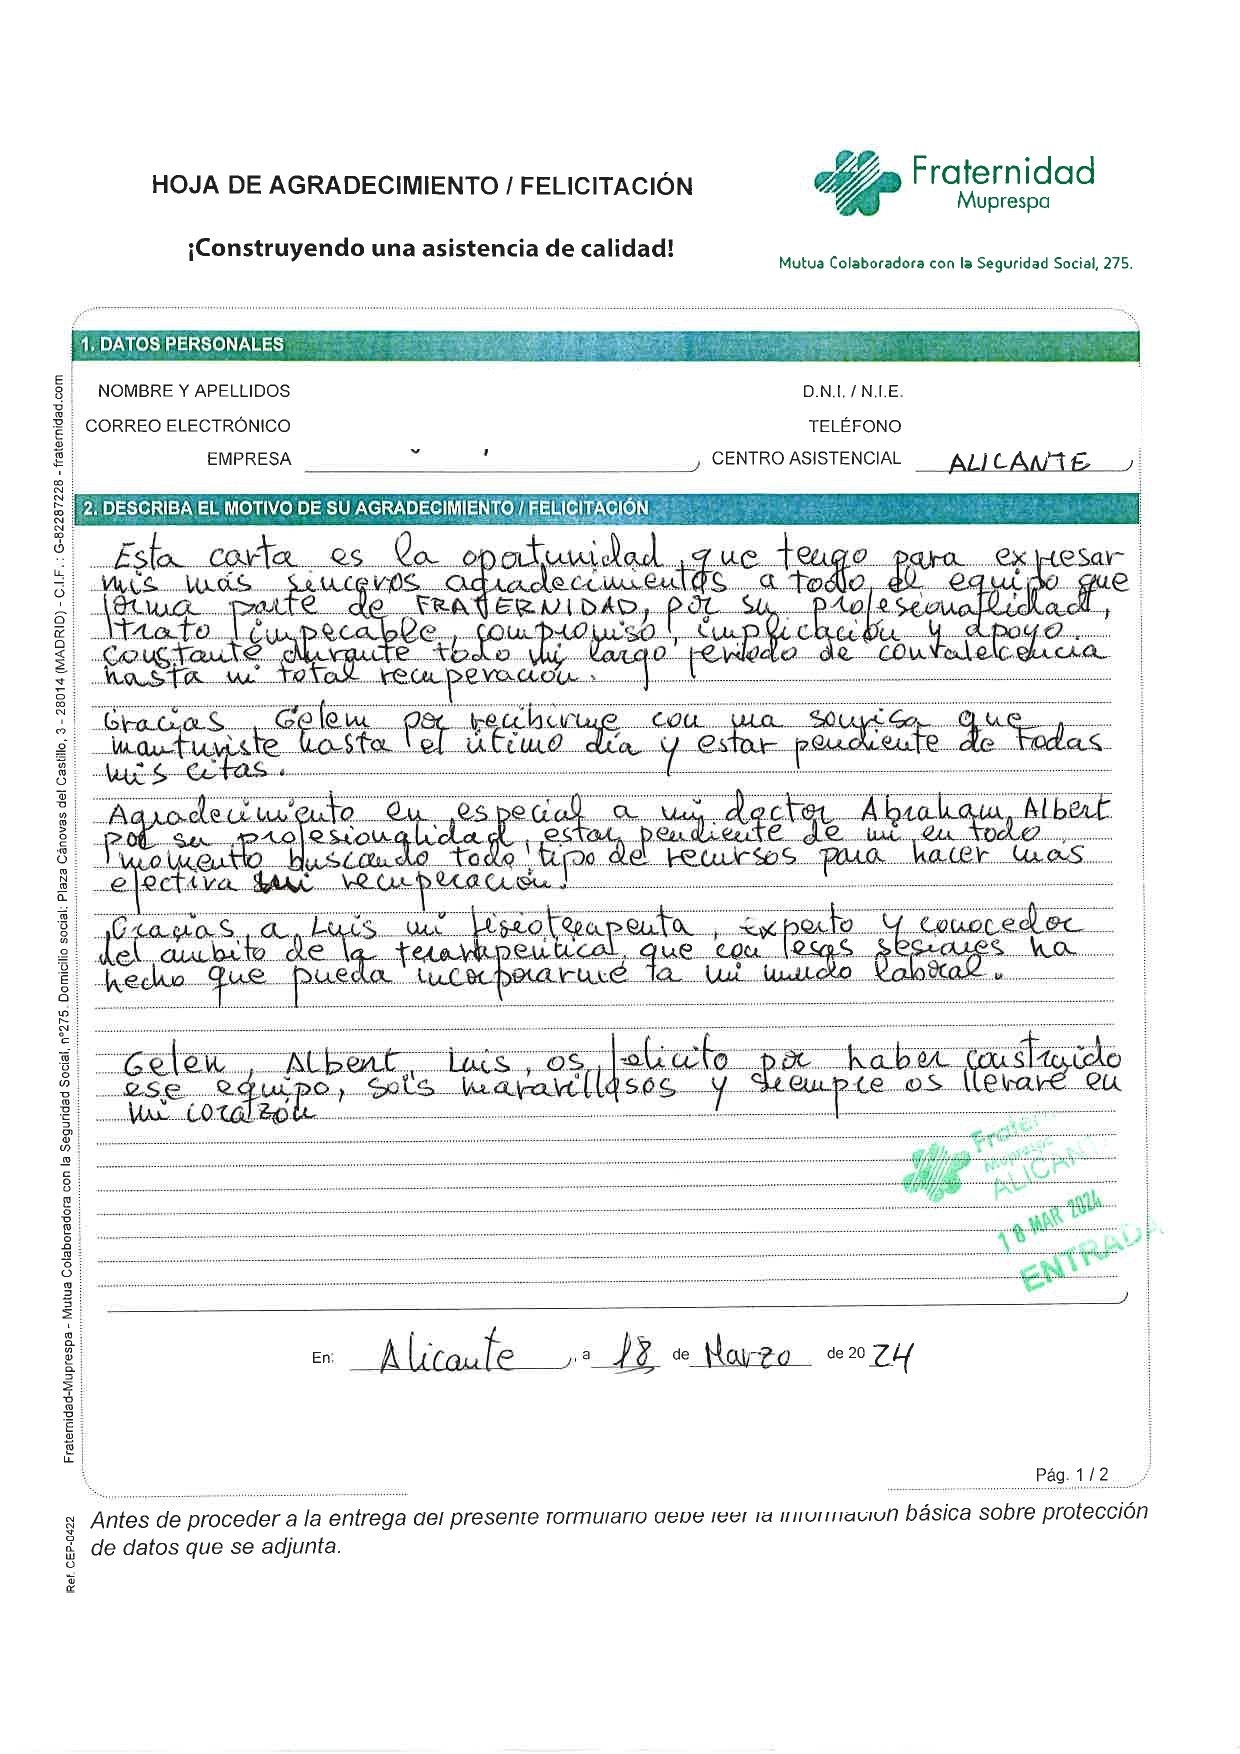 HOJA DE AGRADECIMIENTO / FELICITACIÓN
¡Construyendo una asistencia de calidad!
Fraternidad
Muprespa
Mutua Colaboradora con la Seguridad Social, 275.
1. DATOS PERSONALES
NOMBRE Y APELLIDOS
D.N.I. / N.I.E.
CORREO ELECTRÓNICO
TELÉFONO
EMPRESA
CENTRO ASISTENCIAL ALICANTE
2. DESCRIBA EL MOTIVO DE SU AGRADECIMIENTO / FELICITACIÓN
Esta carta es la oportunidad que tengo para expresar
mis más sinceros agradecimientos a todo el equipo que
forma parte de FRATERNIDAD, por su profesionalidad,
trato impecable, compromiso, implicación y apoyo
constante durante todo mi largo periodo de convalecencia
hasta mi total recuperación.
Gracias, Gelen por recibirme con una sonrisa que
mantuviste hasta el último día y estar pendiente de todas
mis citas.
Agradecimiento en especial a mi doctor Abraham Albert
por su profesionalidad, estar pendiente de mi en todo
momento buscando todo tipo de recursos para hacer mas
efectiva mi recuperación.
Gracias a Luis mi fisioterapeuta, experto y conocedor
del ambito de la terarapeutica, que con esas sesiones ha
hecho que pueda incorporarme a mi mundo laboral.
Gelen, Albert, Luis, os felicito por haber construido
ese equipo, sois maravillosos y siempre os llevaré en
mi corazón
Frater
Muprespa
ALICANT
18 MAR 2024
ENTRADA
En: Alicante, a 18 de Marzo de 2024
Pág. 1 / 2
Antes de proceder a la entrega del presente formulario debe leer la información básica sobre protección
de datos que se adjunta.
Fraternidad-Muprespa - Mutua Colaboradora con la Seguridad Social, nº275. Domicilio social: Plaza Cánovas del Castillo, 3 - 28014 (MADRID) - C.I.F. : G-82287228 - fraternidad.com
Ref. CEP-0422